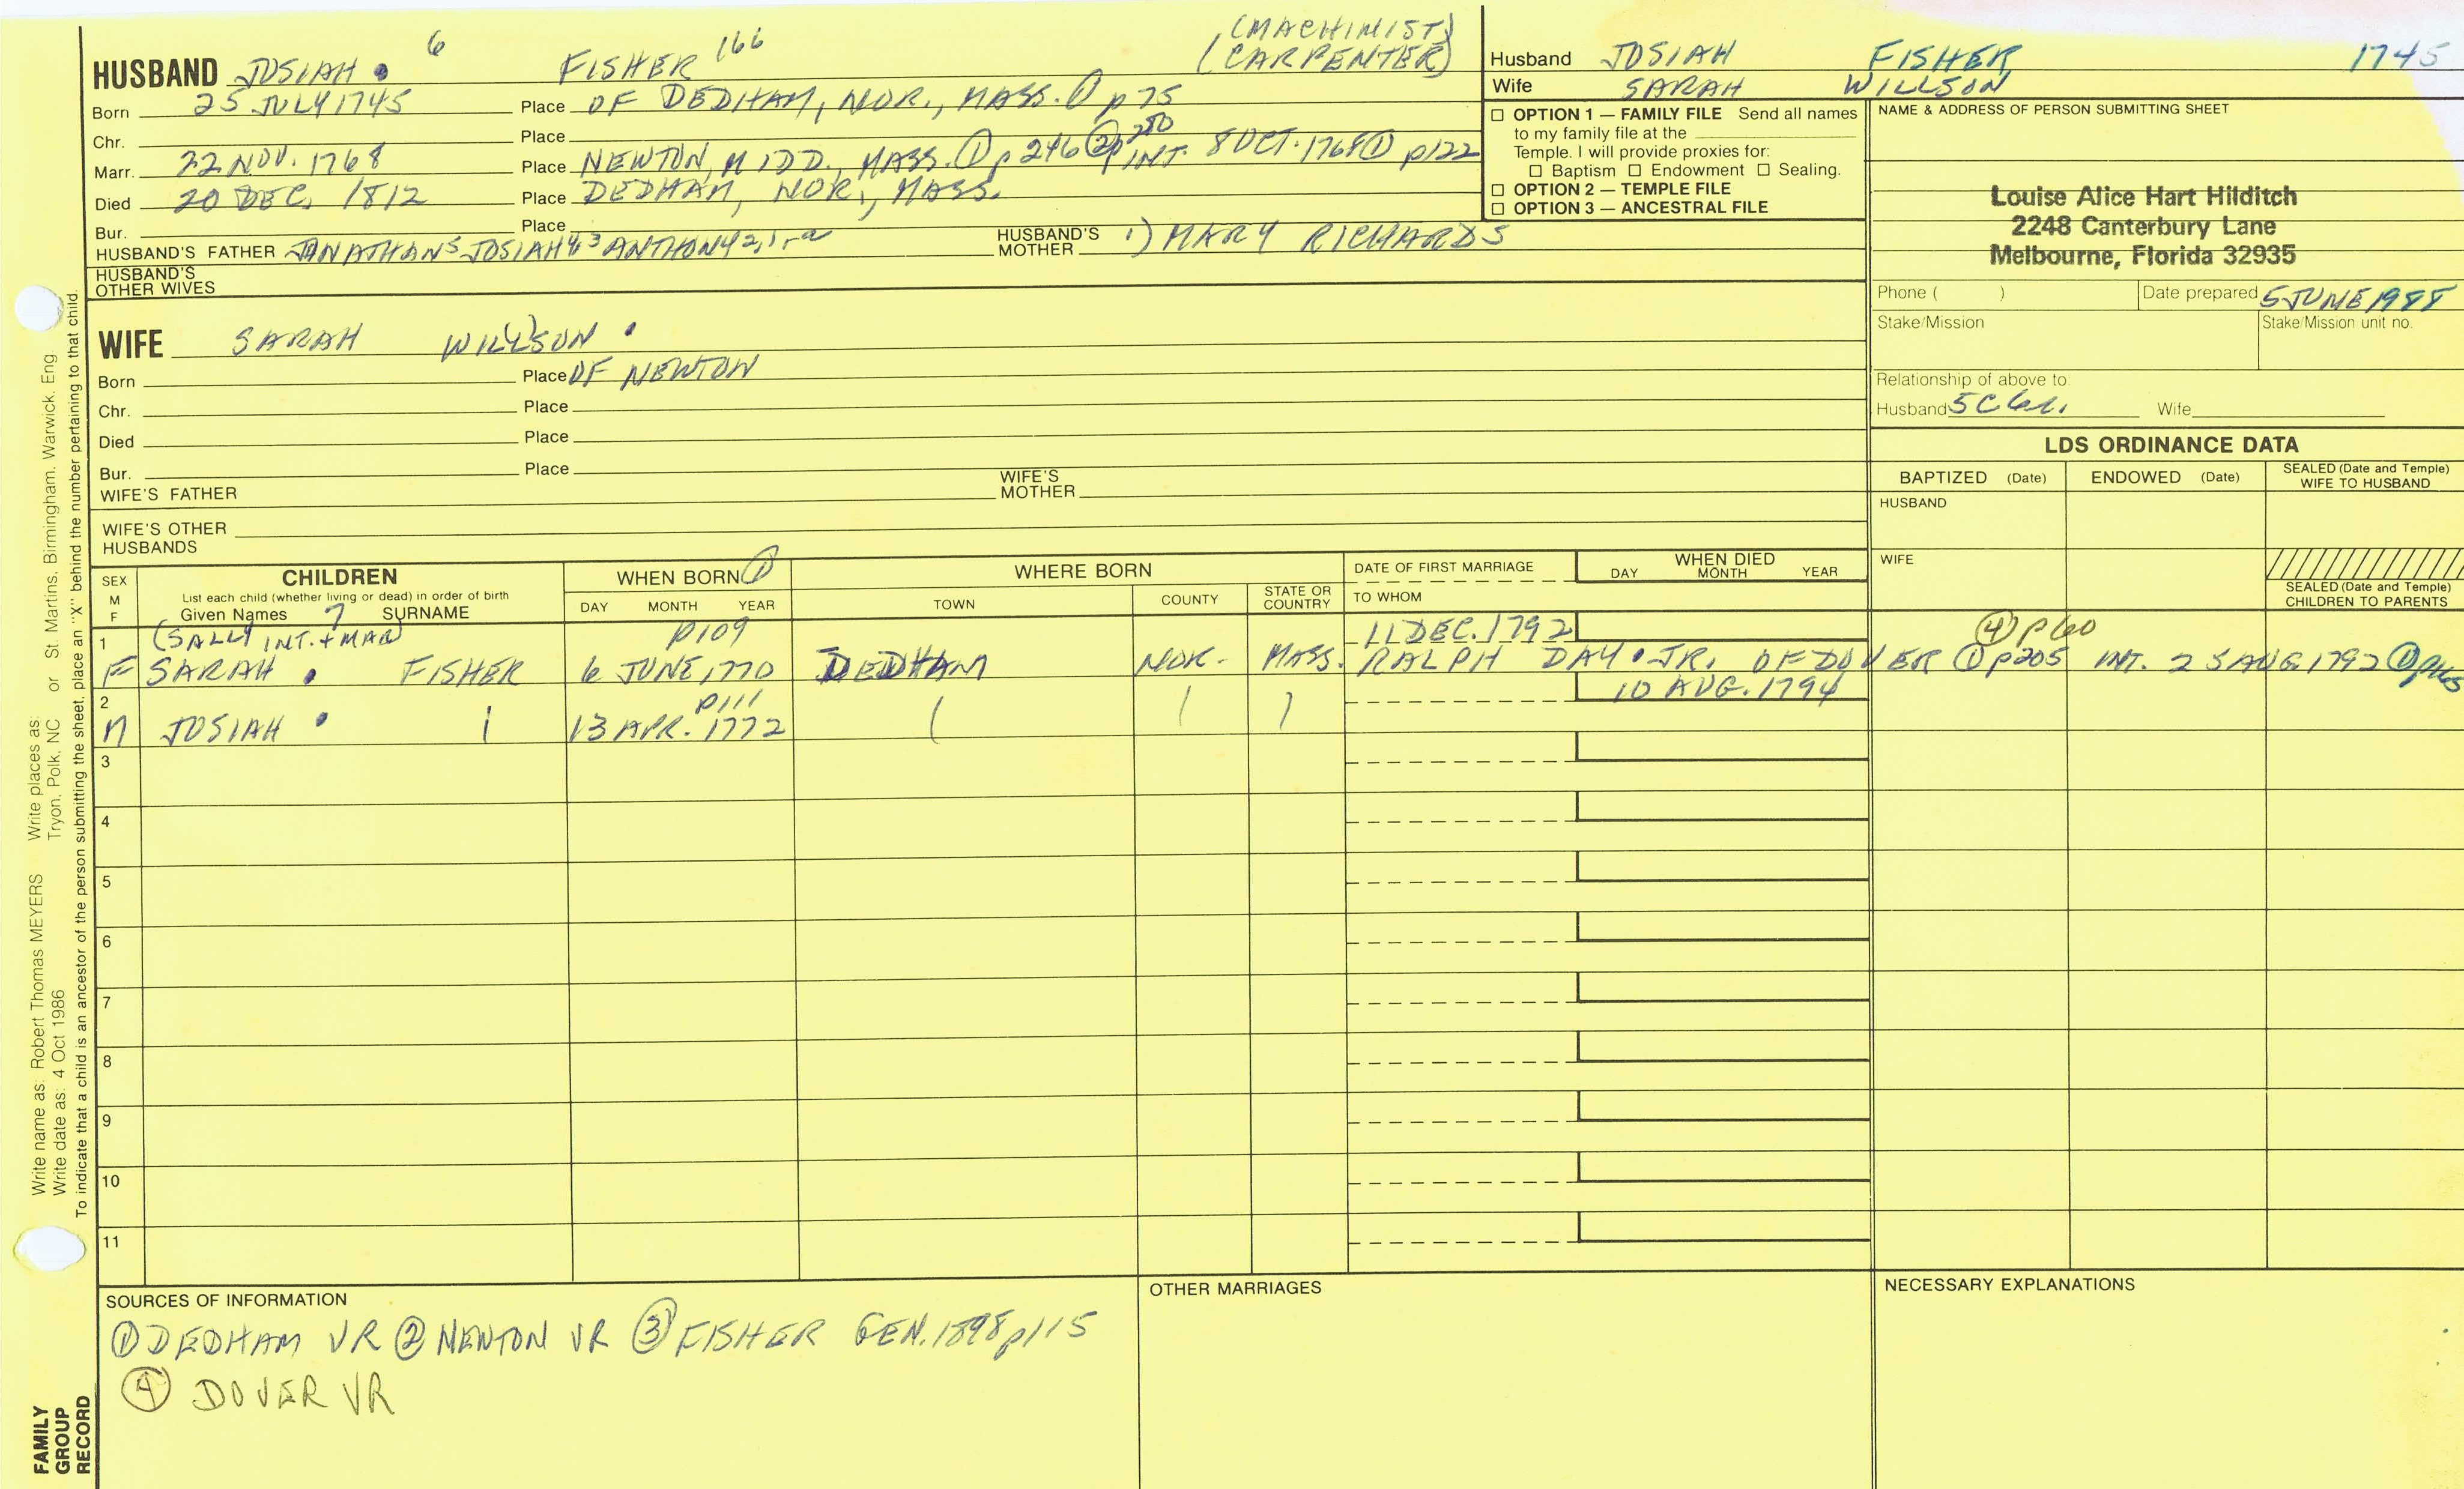 (MACHINIST)
HUSBAND JOSIAH 6 FISHER 166 (CARPENTER)
Born 25 JULY 1745 Place OF DEDHAM, NOR., MASS. ① p75
Chr. Place
Marr. 22 NOV. 1768 Place NEWTON, MIDD., MASS. ① p246 ② p280 INT. 8 OCT. 1768 ① p122
Died 20 DEC. 1812 Place DEDHAM, NOR., MASS.
Bur. Place
HUSBAND'S FATHER JONATHAN5 JOSIAH4,3 ANTHONY2,1,a HUSBAND'S MOTHER 1) MARY RICHARDS
HUSBAND'S OTHER WIVES
Husband JOSIAH FISHER 1745
Wife SARAH WILLSON
☐ OPTION 1 — FAMILY FILE Send all names
to my family file at the
Temple. I will provide proxies for:
☐ Baptism ☐ Endowment ☐ Sealing.
☐ OPTION 2 — TEMPLE FILE
☐ OPTION 3 — ANCESTRAL FILE
NAME & ADDRESS OF PERSON SUBMITTING SHEET
Louise Alice Hart Hilditch
2248 Canterbury Lane
Melbourne, Florida 32935
Phone ( ) Date prepared 5 JUNE 1988
Stake/Mission Stake/Mission unit no.
Relationship of above to:
Husband 5C6R. Wife
WIFE SARAH WIL(L)SON
Born Place OF NEWTON
Chr. Place
Died Place
Bur. Place
WIFE'S FATHER WIFE'S MOTHER
WIFE'S OTHER HUSBANDS
LDS ORDINANCE DATA
BAPTIZED (Date) ENDOWED (Date) SEALED (Date and Temple) WIFE TO HUSBAND
HUSBAND
WIFE
SEALED (Date and Temple) CHILDREN TO PARENTS
SEX M F
CHILDREN
List each child (whether living or dead) in order of birth
Given Names 7 SURNAME
WHEN BORN ①
DAY MONTH YEAR
WHERE BORN
TOWN COUNTY STATE OR COUNTRY
DATE OF FIRST MARRIAGE
TO WHOM
WHEN DIED
DAY MONTH YEAR
1 (SALLY INT. + MAR) p109 11 DEC. 1792 ④ p60
F SARAH FISHER 6 JUNE 1770 DEDHAM NOR. MASS. RALPH DAY JR. OF DOVER ① p205 INT. 25 AUG 1792 ① p165
2 p111 10 AUG. 1794
M JOSIAH 13 APR. 1772
3
4
5
6
7
8
9
10
11
SOURCES OF INFORMATION
① DEDHAM VR ② NEWTON VR ③ FISHER GEN. 1898 p115
④ DOVER VR
OTHER MARRIAGES
NECESSARY EXPLANATIONS
Write name as: Robert Thomas MEYERS Write places as: St. Martins, Birmingham, Warwick, Eng
Write date as: 4 Oct 1986 Tryon, Polk, NC or
To indicate that a child is an ancestor of the person submitting the sheet, place an "X" behind the number pertaining to that child.
FAMILY
GROUP
RECORD